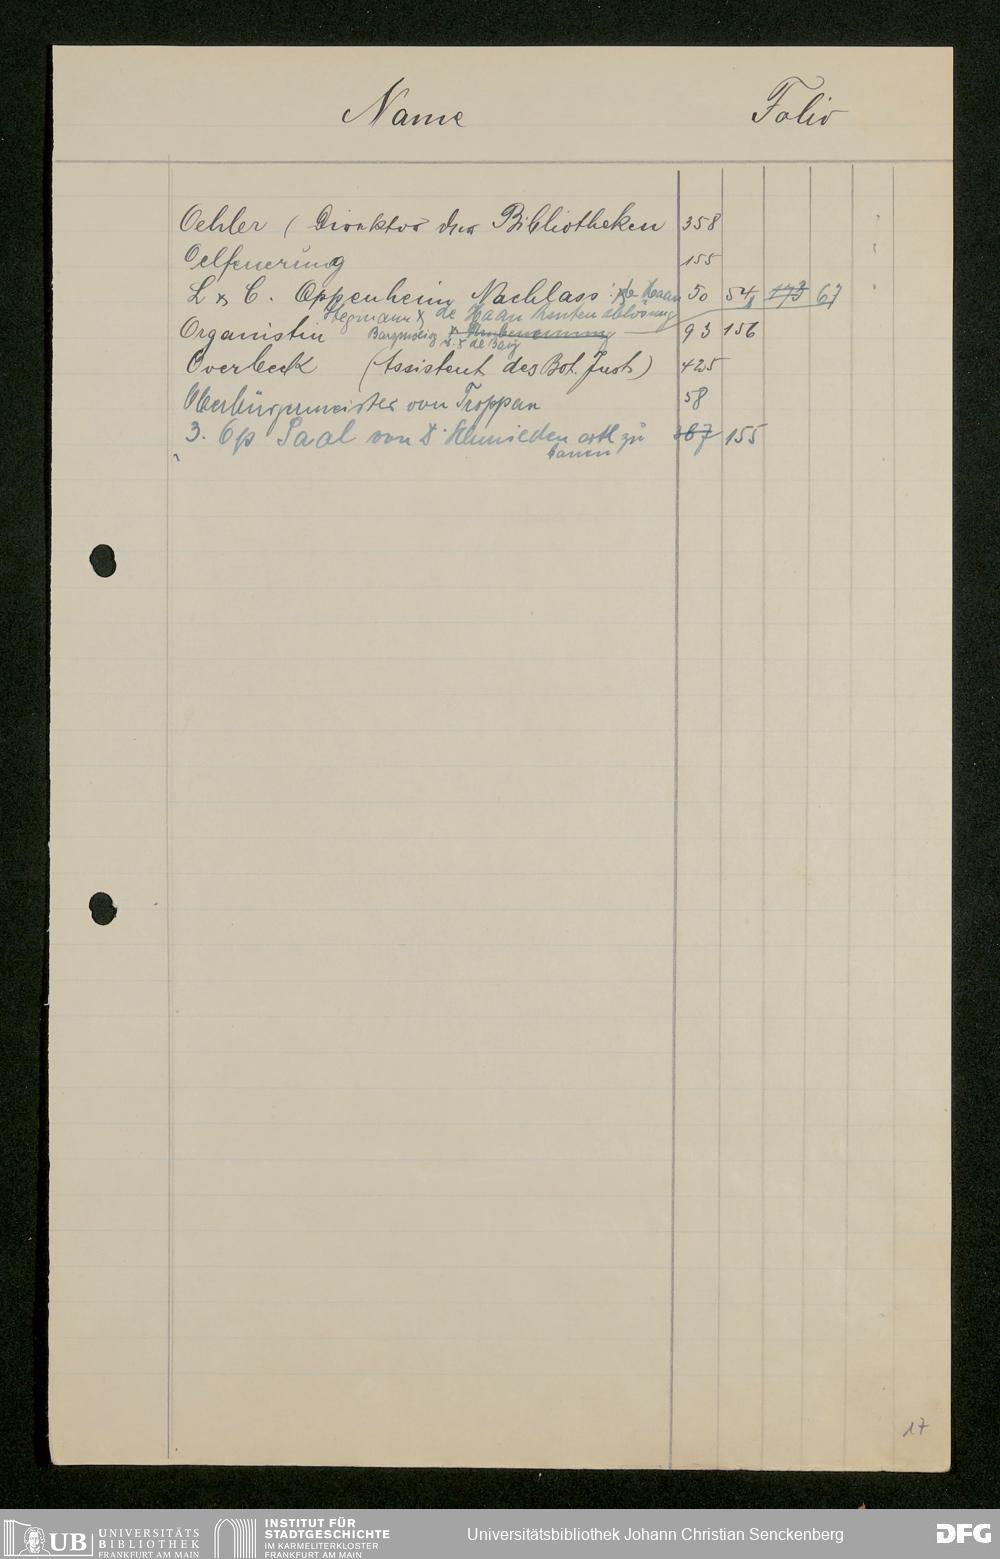 Name Folio
Oehler ( Direktor der Bibliotheken 358
Oelfeuerung 155
L & C. Oppenheim Nachlass : de Haan 50 54 173 67
Stegmann & de Haan
Organistin 93 156
de Bary
Overbeck (Assistent des Bot. Inst.) 425
Oberbürgermeister von Troppau 58
3. Op Saal von Schmieden zu 367 155
bauen
17
UB UNIVERSITÄTS
BIBLIOTHEK
FRANKFURT AM MAIN
INSTITUT FÜR
STADTGESCHICHTE
IM KARMELITERKLOSTER
FRANKFURT AM MAIN
Universitätsbibliothek Johann Christian Senckenberg
DFG